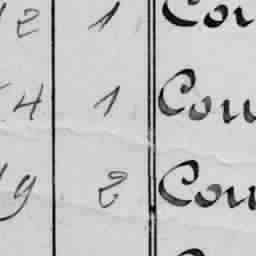 2 1 Cou
4 1 Cou
9 2 Cou